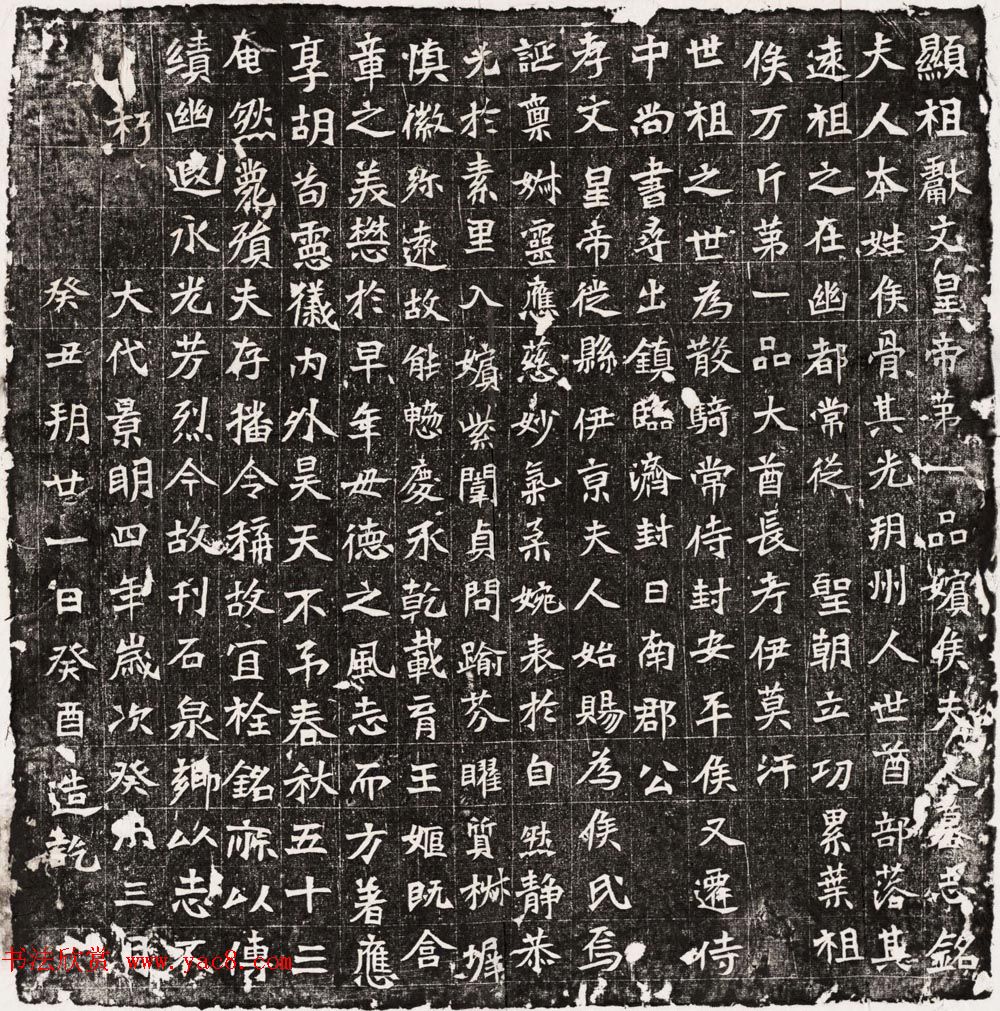 顯祖獻文皇帝第一品嬪侯夫人墓志銘
夫人本姓侯骨其先朔州人世酋部落其
遠祖之在幽都常從 聖朝立功累葉祖
俟万斤第一品大酋長考伊莫汗
世祖之世為散騎常侍封安平侯又遷侍
中尚書尋出鎮臨濟封日南郡公
孝文皇帝徙縣伊京夫人始賜為侯氏焉
誕稟姌靈應慈妙氣柔婉表於自然靜恭
光於素里入嬪紫闈貞問踰芬曜質椒墀
慎徽弥遠故能憗慶承乾載育王姬既含
章之美懋於早年毋德之風志而方著應
享胡苟靈儀內外昊天不弔春秋五十三
奄然薨殞夫存播令稱故宜栓銘庥以專
績幽遐永光芳烈今故刊石泉鄉以志不
朽
大代景明四年歲次癸未三月
癸丑朔廿一日癸酉造訖
书法欣赏 www.yac8.com